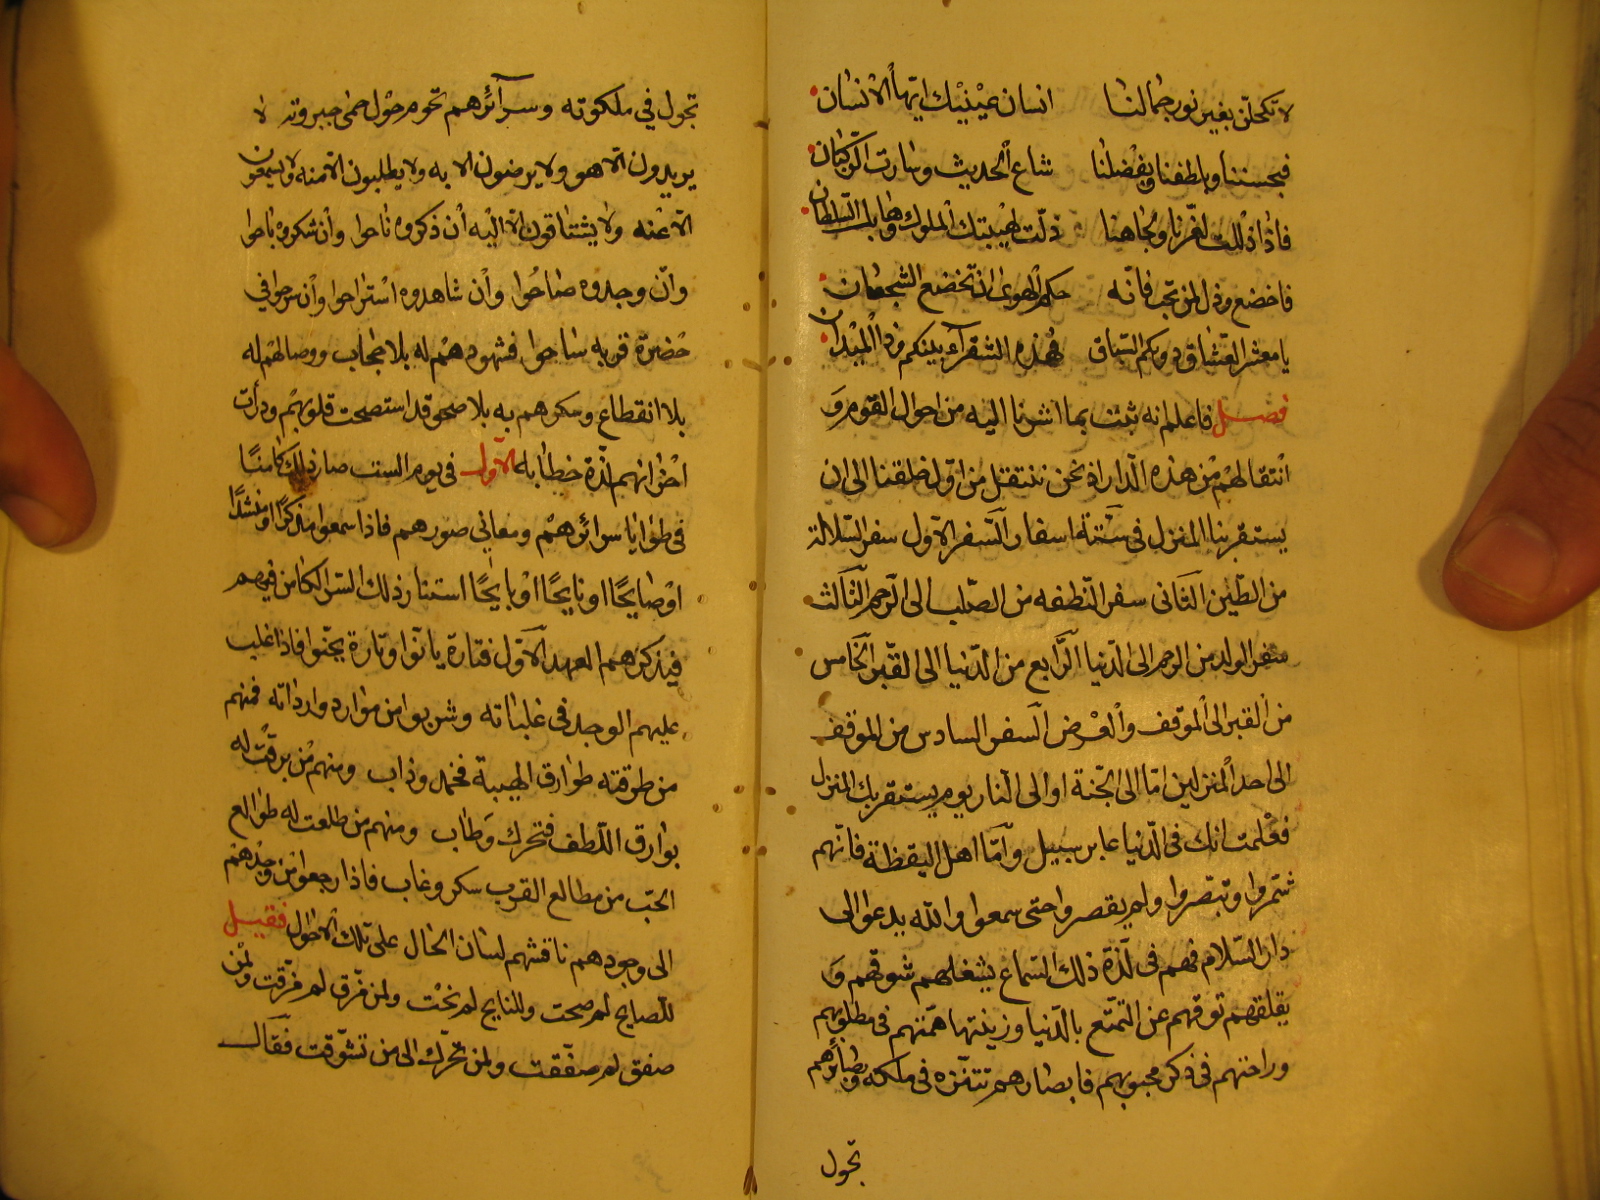 لا تكحلن بغير نور جمالنا انسان عينيك ايها الانسان
فبحسننا وبلطفنا وبفضلنا شاع الحديث وسارت الركبان
فاذا ذللت لعزنا ولجاهنا ذلت لهيبتك الملوك وهابك السلطان
فاخضع وذل لمن تحب فانه حكم الهوى ان تخضع الشجعان
يا معشر العشاق دونكم السباق فهذه الشقرآء بينكم وذا الميدان
فصل فاعلم انه ثبت بما اشرنا اليه من احوال القوم وَ
انتقالهم من هذه الدار اذ نحن ننتقل من اول خلقنا الى ان
يستقر بنا المنزل في ستة اسفار السفر الاول سفر السلالة
من الطين الثاني سفر النطفه من الصلب الى الرحم الثالث
سفر الولد من الرحم الى الدنيا الرابع من الدنيا الى القبر الخامس
من القبر الى الموقف والعرض السفر السادس من الموقف
الى احد المنزلين اما الى الجنة او الى النار يوم يستقر بك المنزل
فعلمت انك في الدنيا عابر سبيل واما اهل اليقظة فانهم
شمروا وتبصروا ولم يقصروا حتى سمعوا والله يدعوا الى
دار السلام فهم في لذة ذلك السماع يشغلهم شوقهم وَ
يقلقهم توقهم عن التمتع بالدنيا وزينتها همتهم في مطلوبهم
وراحتهم في ذكر محبوبهم فابصارهم تتنزه في ملكه وبصائرهم
تجول
تجول في ملكوته وسرآئرهم تحوم حول حمى جبروته لا
يريدون الا هو ولا يرضون الا به ولا يطلبون الا منه ولا يسمعون
الا عنه ولا يشتاقون الا اليه ان ذكروه ناحوا وان شكروه باحوا
وان وجدوه صاحوا وان شاهدوه استراحوا وان سرحوا في
حضرة قربه ساحوا فشهودهم له بلا حجاب ووصالهم له
بلا انقطاع وسكرهم به بلا صحو قد استصحت قلوبهم ودارت
احزانهم لذة خطابه الاول في يوم الست صار ذلك كامنًا
في طوايا سرائرهم ومعاني صورهم فاذا سمعوا مذكرًا او منشدًا
او صايحًا او نايحًا او بايحًا استثار ذلك السر الكامن فيهم
فيذكرهم العهد الاول فتارة يانوا وتارة يحنوا فاذا غلب
عليهم الوجد في غلباته وشربوا من موارد وارداته فمنهم
من طرقته طوارق الهيبة فخمد وذاب ومنهم من برقت له
بوارق اللطف فتحرك وطاب ومنهم من طلعت له طوالع
الحب من مطالع القرب سكر وغاب فاذا رجعوا من وجدهم
الى وجودهم ناقشهم لسان الحال على تلك الاحوال فقيل
للصايح لم صحت وللنايح لم نحت ولمن فرق لم فرقت ولمن
صفق لم صفقت ولمن تحرك الى من تشوقت فقال